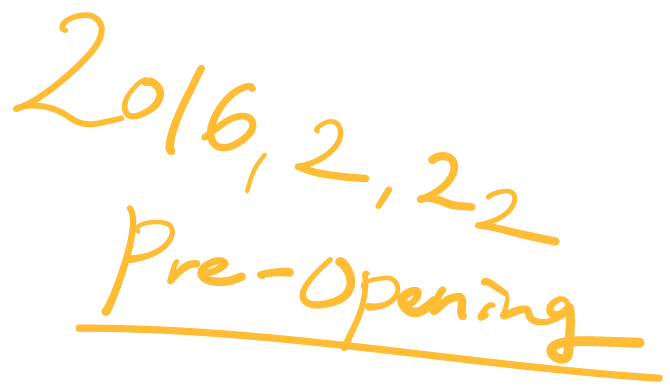 2016,2,22
Pre-Opening